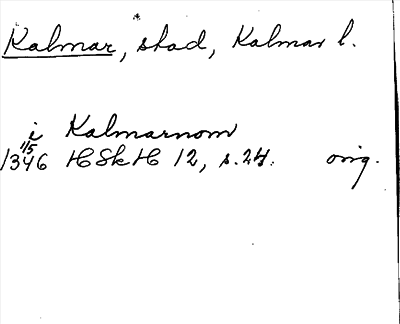 Kalmar, stad, Kalmar l.
i Kalmarnom
1/5
1346 HSkH 12, s. 24. orig.